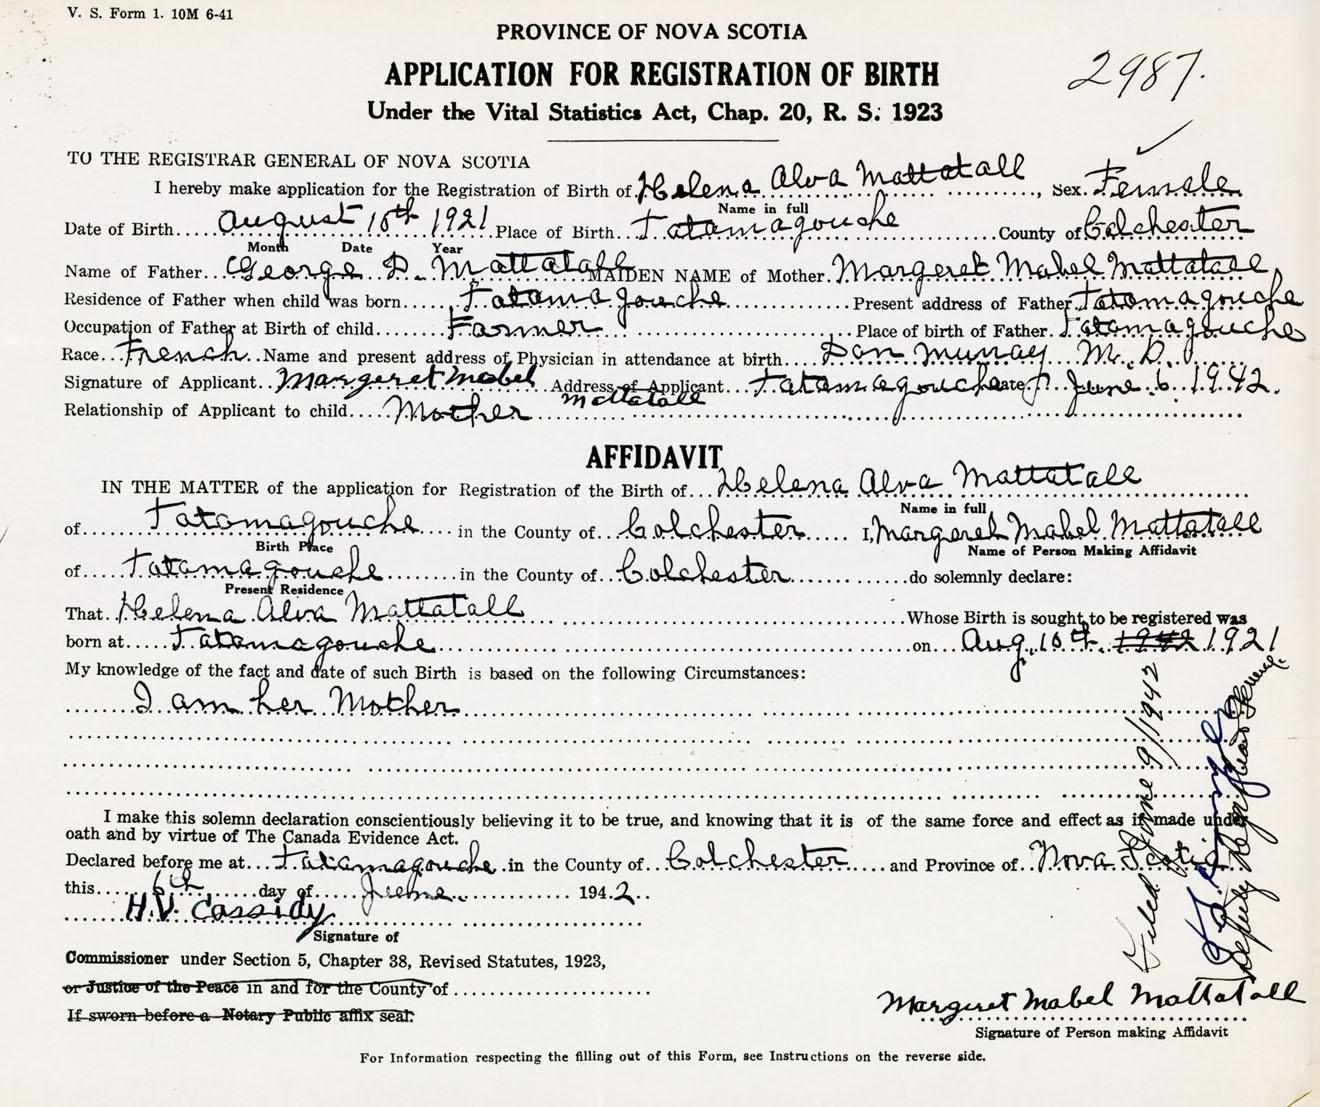 V. S. Form 1. 10M 6-41
PROVINCE OF NOVA SCOTIA
APPLICATION FOR REGISTRATION OF BIRTH
2987.
Under the Vital Statistics Act, Chap. 20, R. S. 1923
TO THE REGISTRAR GENERAL OF NOVA SCOTIA
I hereby make application for the Registration of Birth of Helena Alva Mattatall, Sex Female
Name in full
Date of Birth August 10th 1921 Place of Birth Tatamagouche County of Colchester
Month Date Year
Name of Father George D. Mattatall MAIDEN NAME of Mother Margeret Mabel Mattatall
Residence of Father when child was born Tatamagouche Present address of Father Tatamagouche
Occupation of Father at Birth of child Farmer Place of birth of Father Tatamagouche
Race French Name and present address of Physician in attendance at birth Dan Murray M. D.
Signature of Applicant Margeret Mabel Mattatall Address of Applicant Tatamagouche Date June 6 1942.
Relationship of Applicant to child Mother
AFFIDAVIT
IN THE MATTER of the application for Registration of the Birth of Helena Alva Mattatall
Name in full
of Tatamagouche in the County of Colchester I, Margeret Mabel Mattatall
Birth Place Name of Person Making Affidavit
of Tatamagouche in the County of Colchester do solemnly declare:
Present Residence
That Helena Alva Mattatall Whose Birth is sought to be registered was
born at Tatamagouche on Aug. 10th. 1942 1921
My knowledge of the fact and date of such Birth is based on the following Circumstances:
I am her Mother
I make this solemn declaration conscientiously believing it to be true, and knowing that it is of the same force and effect as if made under
oath and by virtue of The Canada Evidence Act.
Declared before me at Tatamagouche in the County of Colchester and Province of Nova Scotia
this 6th day of June 1942
H.V. Cassidy
Signature of
Commissioner under Section 5, Chapter 38, Revised Statutes, 1923,
or Justice of the Peace in and for the County of
If sworn before a Notary Public affix seal.
Filed June 9/1942
Deputy Registrar General
Margeret Mabel Mattatall
Signature of Person making Affidavit
For Information respecting the filling out of this Form, see Instructions on the reverse side.